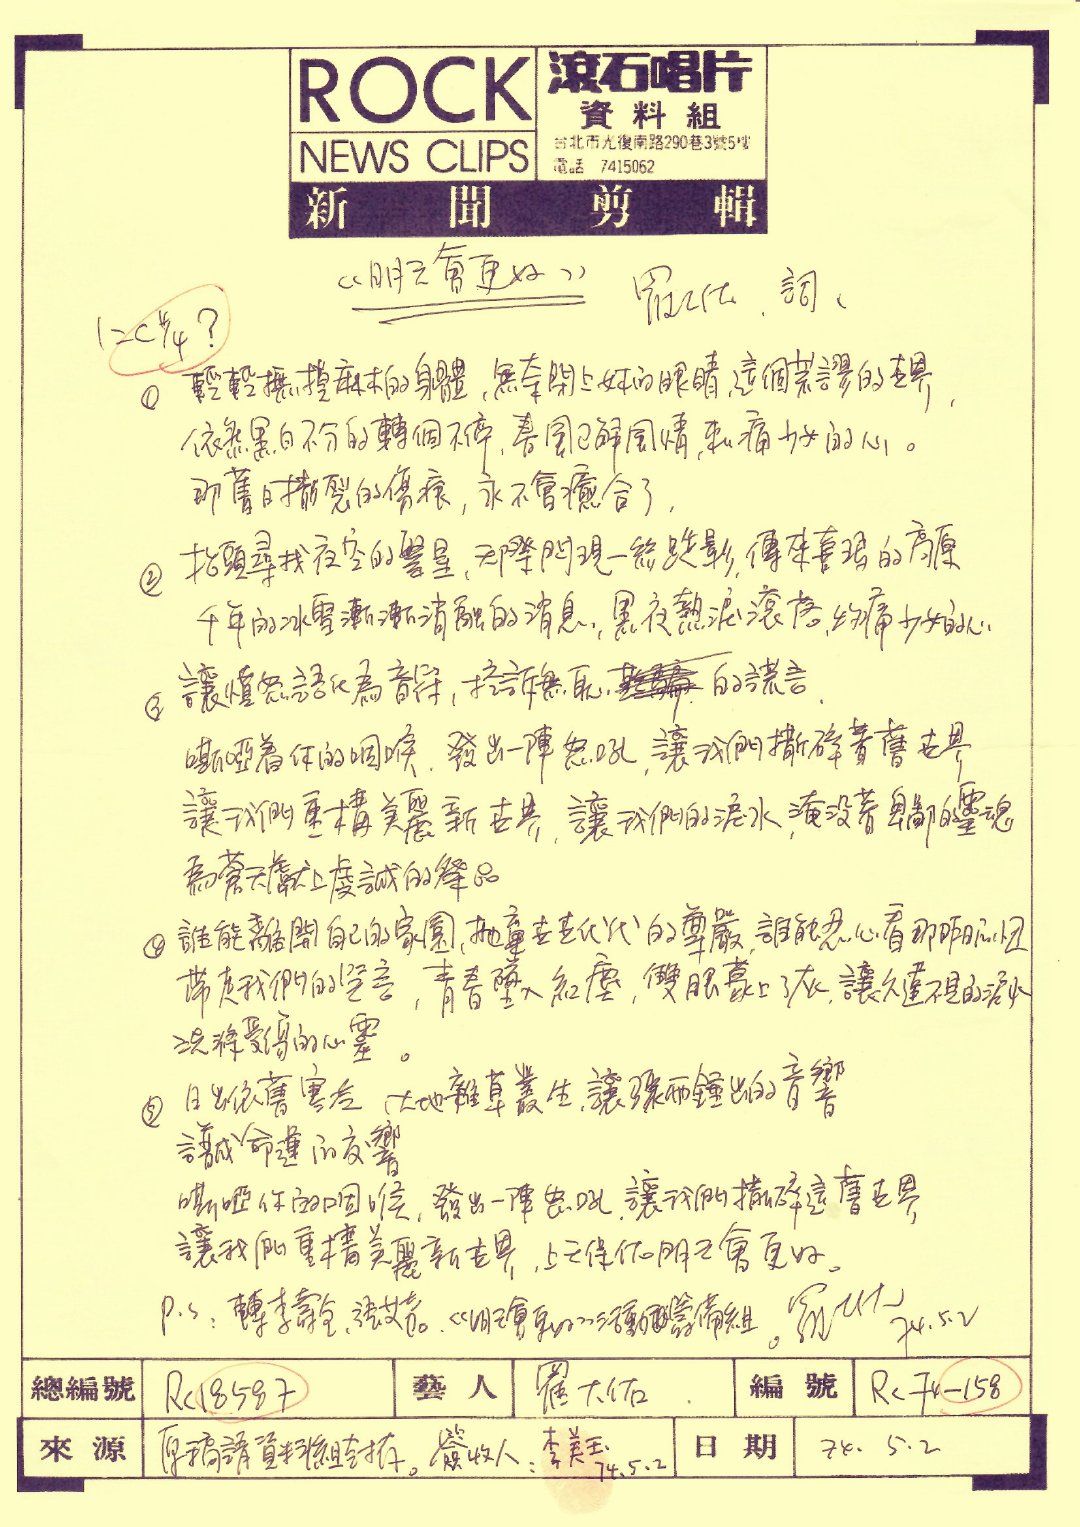 ROCK
NEWS CLIPS
滾石唱片
資料組
台北市光復南路290巷3號5樓
電話 7415062
新聞剪輯
《明天會更好》 羅大佑．詞、
1=C 4/4?
① 輕輕撫摸麻木的身體，無奈閉上妳的眼睛，這個荒謬的世界，
依然黑白不分的轉個不停，春風已解風情，刺痛少女的心。
那舊日撕裂的傷痕，永不會癒合了，
② 抬頭尋找夜空的繁星，天際閃現一絲跌影，傳來喜瑪的高原
千年的冰雪漸漸消融的消息，黑夜熱淚滾落，灼痛少女的心
③ 讓憤怒語化為音符，控訴無恥的謊言．
嘶啞着你的咽喉．發出一陣怒吼，讓我們撕碎著舊世界
讓我們重構美麗新世界，讓我們的淚水，淹沒著卑鄙的靈魂
為蒼天獻上虔誠的祭品
④ 誰能離開自己的家園，拋棄世世代代的尊嚴，誰能忍心看那昨日的
帶走我們的笑言，青春墜入紅塵，雙眼蒙上了灰，讓久違不見的淚水
洗滌受傷的心靈。
⑤ 日出依舊寒冷 大地雜草叢生，讓 鐘出的音響
譜成命運的交響
嘶啞你的咽喉，發出一陣怒吼，讓我們撕碎這舊世界
讓我們重構美麗新世界，上天保佑明天會更好。
P.S：轉李壽全，張艾嘉。《明天會更好》活動籌備組。羅大佑 74.5.2
總編號 RC18587 藝人 羅大佑． 編號 RC74-158
來源 原稿請資料組封存。簽收人：李美玉 74.5.2 日期 74. 5.2